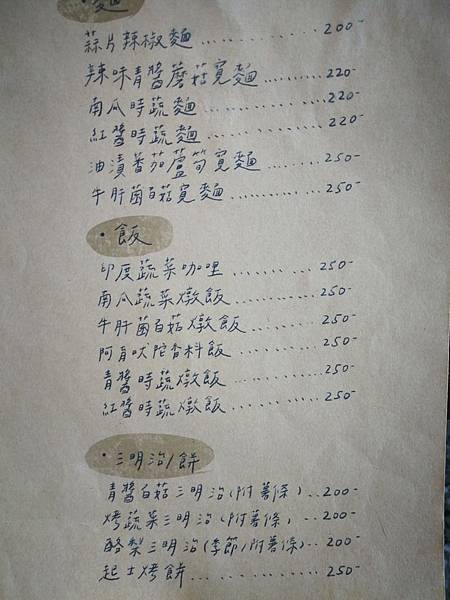 · 麵
蒜片辣椒麵 .............. 200-
辣味青醬蘑菇寬麵 ......... 220-
南瓜時蔬麵 .............. 220-
紅醬時蔬麵 .............. 220-
油漬番茄蘆筍寬麵 ......... 250-
牛肝菌白菇寬麵 ........... 250-
· 飯
印度蔬菜咖哩 ......... 250-
南瓜蔬菜燉飯 ......... 250-
牛肝菌白菇燉飯 ....... 250-
阿育吠陀香料飯 ....... 250-
青醬時蔬燉飯 ......... 250-
紅醬時蔬燉飯 ......... 250-
· 三明治/餅
青醬白菇三明治(附薯條) .. 200-
烤蔬菜三明治(附薯條) ... 200-
酪梨三明治(季節/附薯條) .. 200-
起士烤餅 .............. 250-